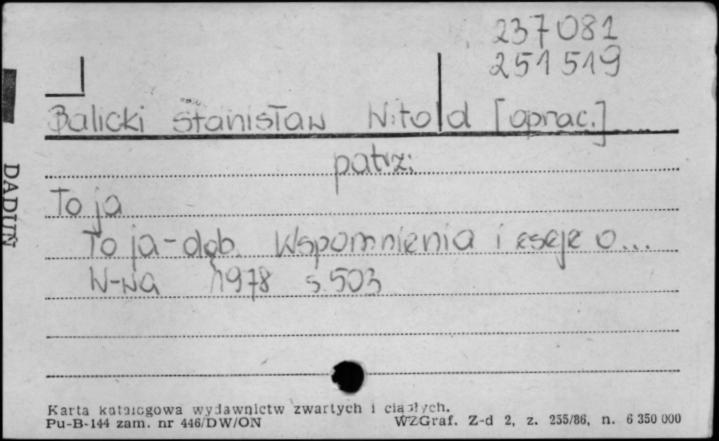 237081
251519
Balicki Stanisław Witold [oprac.]
patrz:
To ja
To ja-dąb. Wspomnienia i eseje o...
W-wa 1978 s.503
DADUŃ
Karta katalogowa wydawnictw zwartych i ciągłych.
Pu-B-144 zam. nr 446/DW/ON WZGraf. Z-d 2, z. 235/86, n. 6 350 000